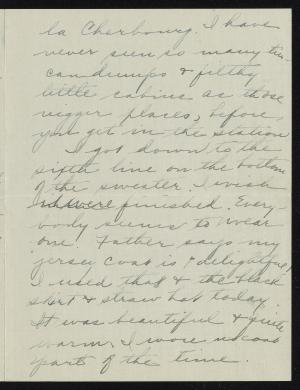 la Cherbourg. I have
never seen so many tin
can dumps & filthy
little cabins as those
nigger places, before
you get in the station
I got down to the
sixth line on the bottom
of the sweater. I wish
it were finished. Every-
body seems to wear
one. Father says my
jersey coat is "delightful"!
I used that & the black
skirt & straw hat today.
It was beautiful & quite
warm. I wore no coat
parts of the time.